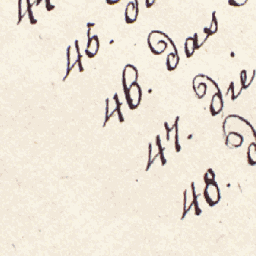 44.
45.
46. Das
47. Die
48.